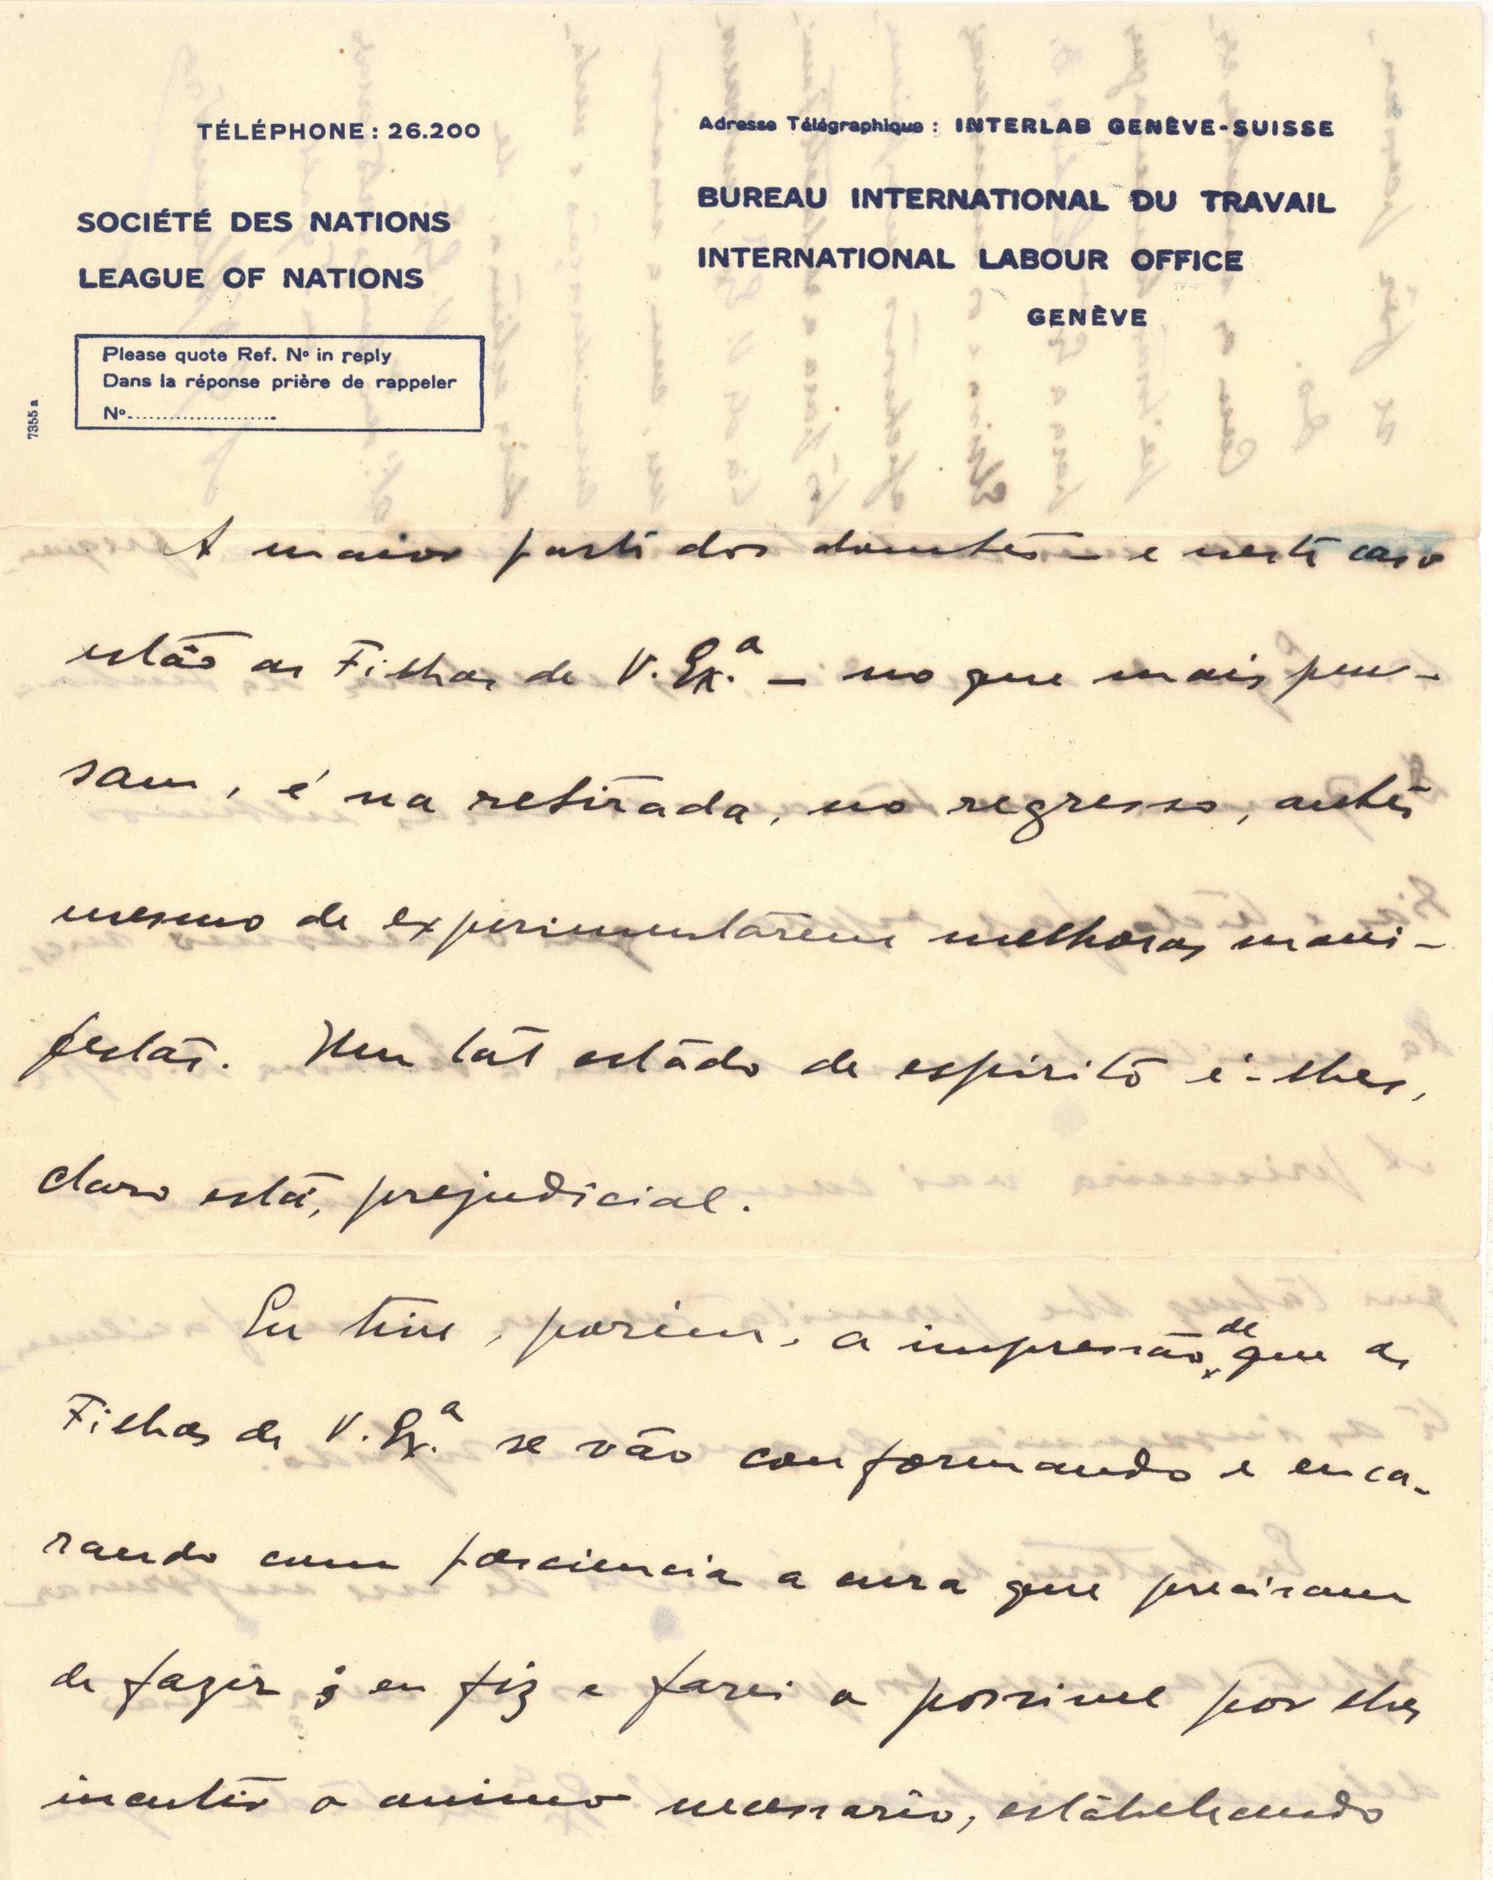 TÉLÉPHONE : 26.200
Adresse Télégraphique : INTERLAB GENÈVE-SUISSE
SOCIÉTÉ DES NATIONS
LEAGUE OF NATIONS
BUREAU INTERNATIONAL DU TRAVAIL
INTERNATIONAL LABOUR OFFICE
GENÈVE
Please quote Ref. Nº in reply
Dans la réponse prière de rappeler
Nº.....................
7355 a
A maior parte dos doentes – e neste caso
estão as Filhas de V. Ex.ª – no que mais pen-
sam, é na retirada, no regresso, antes
mesmo de experimentarem melhoras mani-
festas. Um tal estado de espirito é-lhes,
claro está, prejudicial.
Eu tive, porém, a impressão de que as
Filhas de V. Ex.ª se vão conformando e enca-
rando com pasciencia a cura que precisam
de fazer; eu fiz e farei o possivel por lhes
incutir o animo necessario, estabelecendo